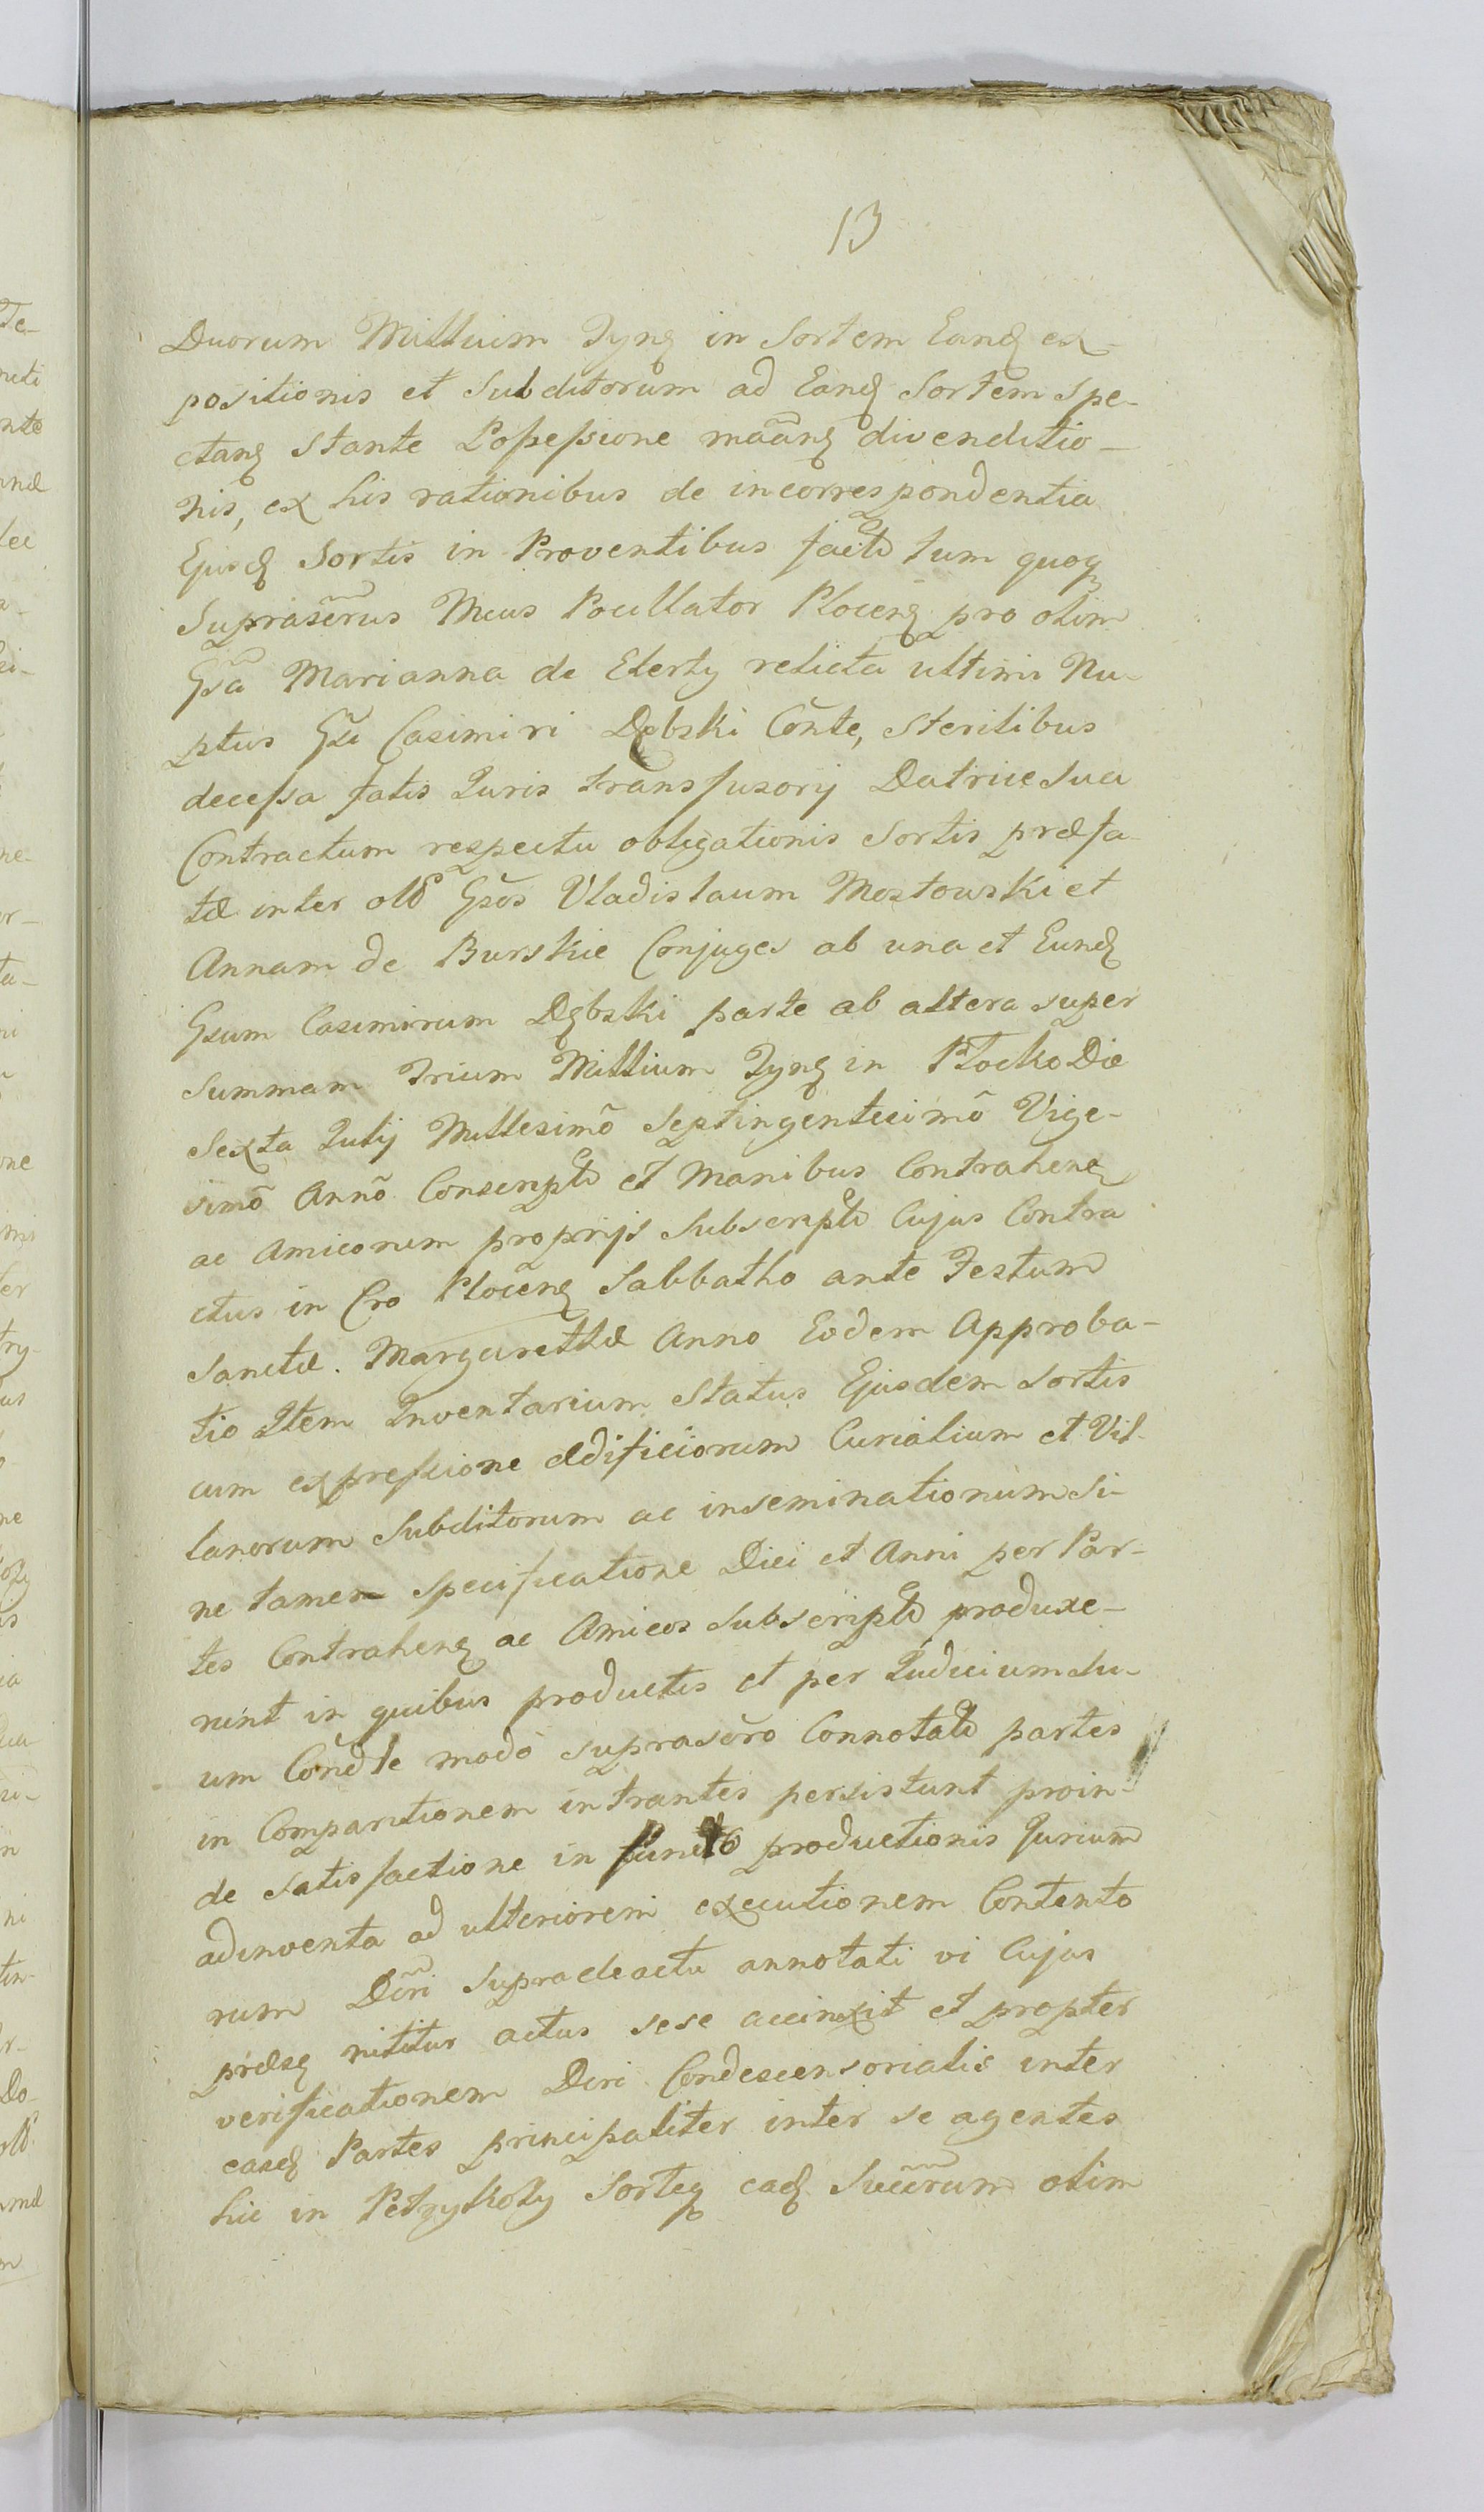 13
Duorum Millium Tynę in Sortem Eandę ex-
positionis et Subditorum ad Eandę Sortem spe-
ctanę stante Possessione maãnę divenditio-
nis, ex his rationibus de incorrespondentia
Ejusdę Sortis in Proventibus factã tum quoqꝫ
Suprascr̃us Meus Pocillator Plocenę pro olim
Gsã Marianna de Elerty relicta ultimis Nu-
ptus Gsi Casimiri Dębski Cõnte, sterilibus
decessa fatis Juris transfusorij Datrice sua
Contractum respectu obligationis Sortis præfa-
tæ inter olõ Gsõs Vladislaum Mostowski et
Annam de Burskie Conjuges ab una et Eundę
Gsum Casimirum Dębski parte ab altera super
summam Trium Millium Tynę in Płocko Die
Sexta Julij Millesimõ Septingentesimõ Vige-
simõ Annõ Conscriptũ et Manibus Contrahenę
ac Amicorum proprijs Subscriptũ Cujus Contra
ctus in Cro Plocenę Sabbatho ante Festum
Sanctæ. Margarethæ Anno Eodem Approba-
tio Item Inventarium Status Ejusdem Sortis
cum expressione ædificiorum Curialium et Vil-
lanorum Subditorum ac inseminationum si-
ne tamen specificatione Diei et Anni per Par-
tes Contrahenę ac Amicos Subscriptũ produxe-
runt in quibus productis et per Judicium Su-
um Cõndle modò suprascr̃o Connotatũ partes
in Comparitionem intrantes persistunt proin-
de satisfactione in puncto productionis Jurium
adinventa ad ulteriorem executionem Contento
rum Dcr̃i supradeactu annotati vi Cujus
præsę nititur actus sese accinxit et propter
verificationem Dcri Condescensorialis inter
easdę Partes principaliter inter se agentes
hic in Petrykoły Sorteqꝫ eadę Succr̃rum olim